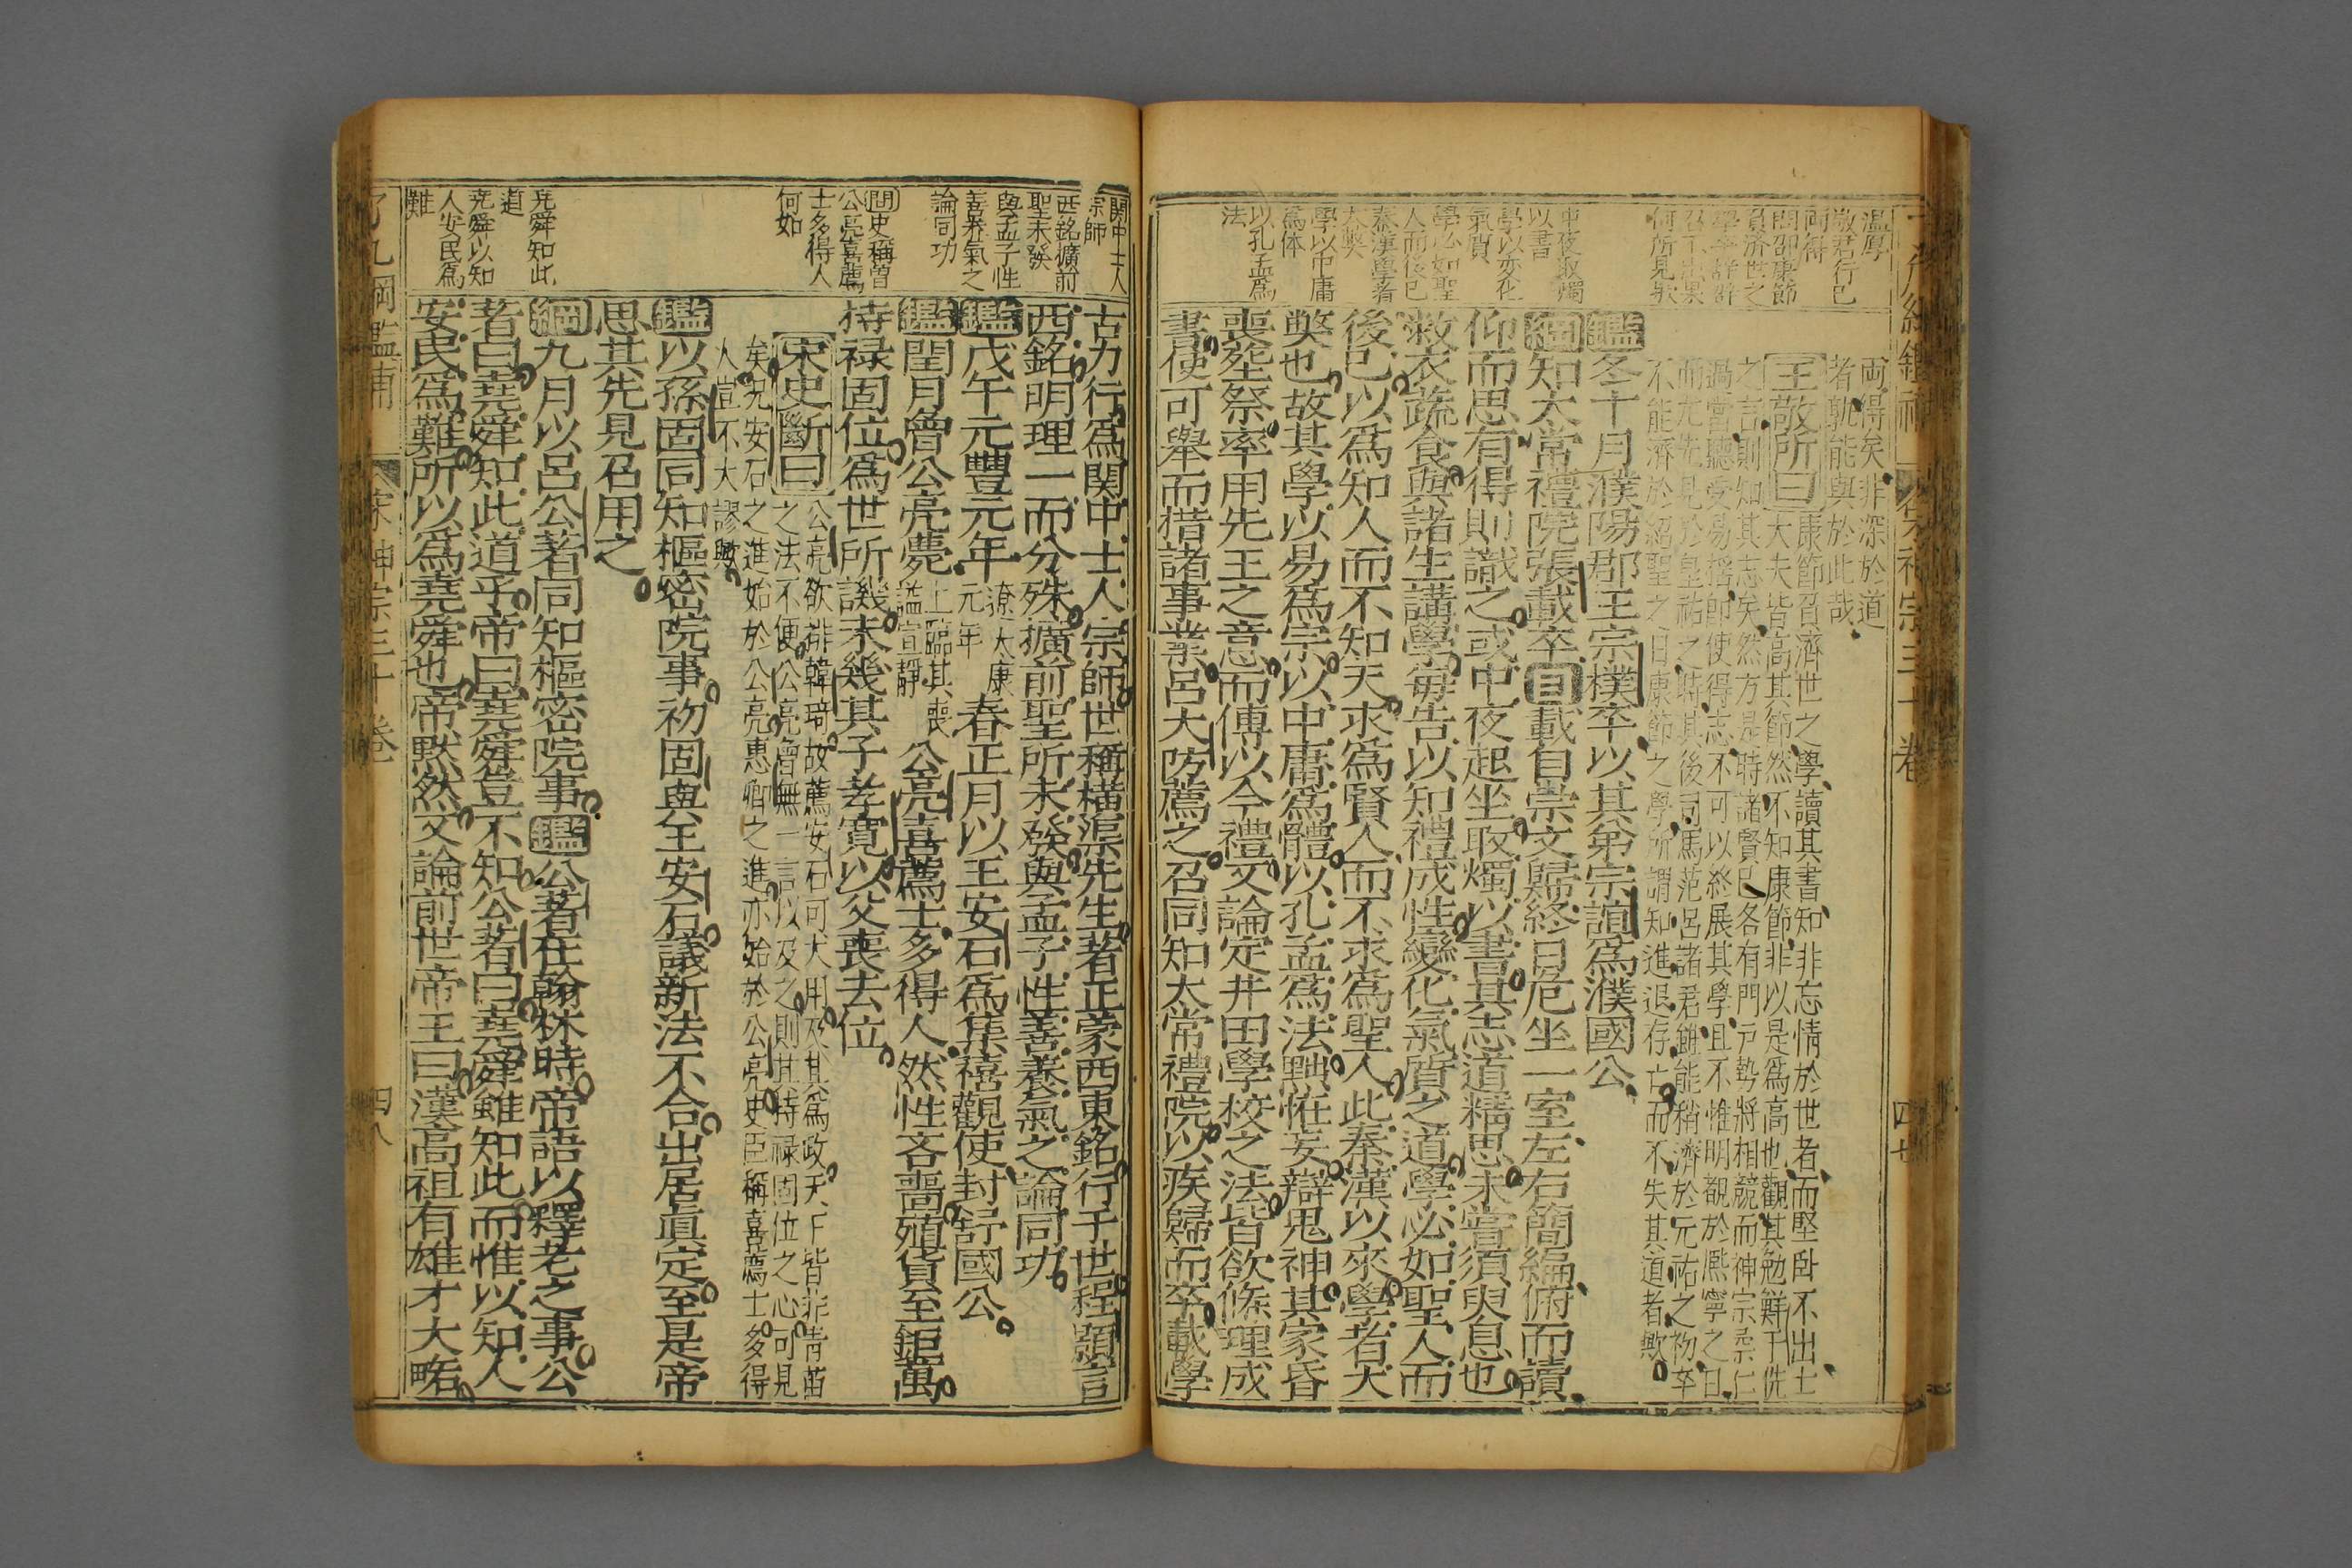 温厚
敬君行己
両得
問邵康節
負濟世之
學卒辭辟
召不出果
何所見歟
中夜取燭
以書
學以变化
氣質
學必如聖
人而後已
秦漢學者
大獘
學以中庸
爲体
以孔孟爲
法
両得矣非深於道
者孰能與於此哉
王敬所曰康節負濟世之學讀其書知非忘情於世者而堅卧不出士
大夫皆高其節然不知康節非以是爲高也觀其勉鮮于侁
之言則知其志矣然方是時諸賢已各有門戸勢將相競而神宗柔仁
過當聽受易搖卽使得志不可以終展其學且不惟明覩於熈寧之日
而尤先見於皇祐之時其後司馬范呂諸君雖能稍濟於元祐之初卒
不能濟於紹聖之日康節之學所謂知進退存亡而不失其道者歟
鑑冬十月濮陽郡王宗樸卒以其弟宗誼爲濮國公
綱知太常禮院張載卒目載自崇文歸終日危坐一室左右簡編俯而讀
仰而思有得則識之或中夜起坐取燭以書其志道精思未嘗須臾息也
敝衣蔬食與諸生講學每告以知禮成性變化氣質之道學必如聖人而
後已以爲知人而不知天求爲賢人而不求爲聖人此秦漢以來學者大
獘也故其學以易爲宗以中庸爲體以孔孟爲法黜恠妄辯鬼神其家昏
喪塟祭率用先王之意而傅以今禮又論定井田學校之法皆欲條理成
書使可舉而措諸事業呂大防薦之召同知太常禮院以疾歸而卒載學
関中士人
宗師
西銘擴前
聖未發
與孟子性
善养氣之
論同功
問史稱曾
公亮喜薦
士多得人
何如
尭舜知此
道
尭舜以知
人安民爲
難
古力行爲関中士人宗師世稱橫渠先生著正蒙西東銘行于世程顥言
西銘明理一而分殊擴前聖所未發與孟子性善養氣之論同功
鑑戊午元豐元年遼大康元年春正月以王安石爲集禧觀使封舒國公
鑑閏月曾公亮薨上臨其喪謚宣靜公亮喜薦士多得人然性吝嗇殖貨至鉅萬
持禄固位爲世所譏未幾其子孝寛以父喪去位
宋史斷曰公亮欲排韓琦故薦安石可大用及其爲政天下皆非靑苗
之法不便公亮曾無一言以及之則其持禄固位之心可見
矣況安石之進始於公亮惠卿之進亦始於公亮史臣稱喜薦士多得
人豈不大謬歟
鑑以孫固同知樞密院事初固與王安石議新法不合出居眞定至是帝
思其先見召用之
綱九月以呂公著同知樞密院事鑑公著在翰林時帝語以釋老之事公
著曰堯舜知此道乎帝曰堯舜豈不知公著曰堯舜雖知此而惟以知人
安民爲難所以爲堯舜也帝默然又論前世帝王曰漢高祖有雄才大略
宋神宗三十卷
四八
四七